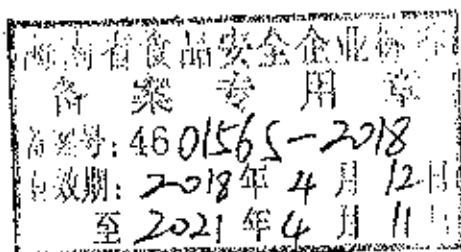 海南省食品安全企业标准
备案专用章
备案号: 4601565-2018
有效期: 2018年4月12日
至 2021年4月11日